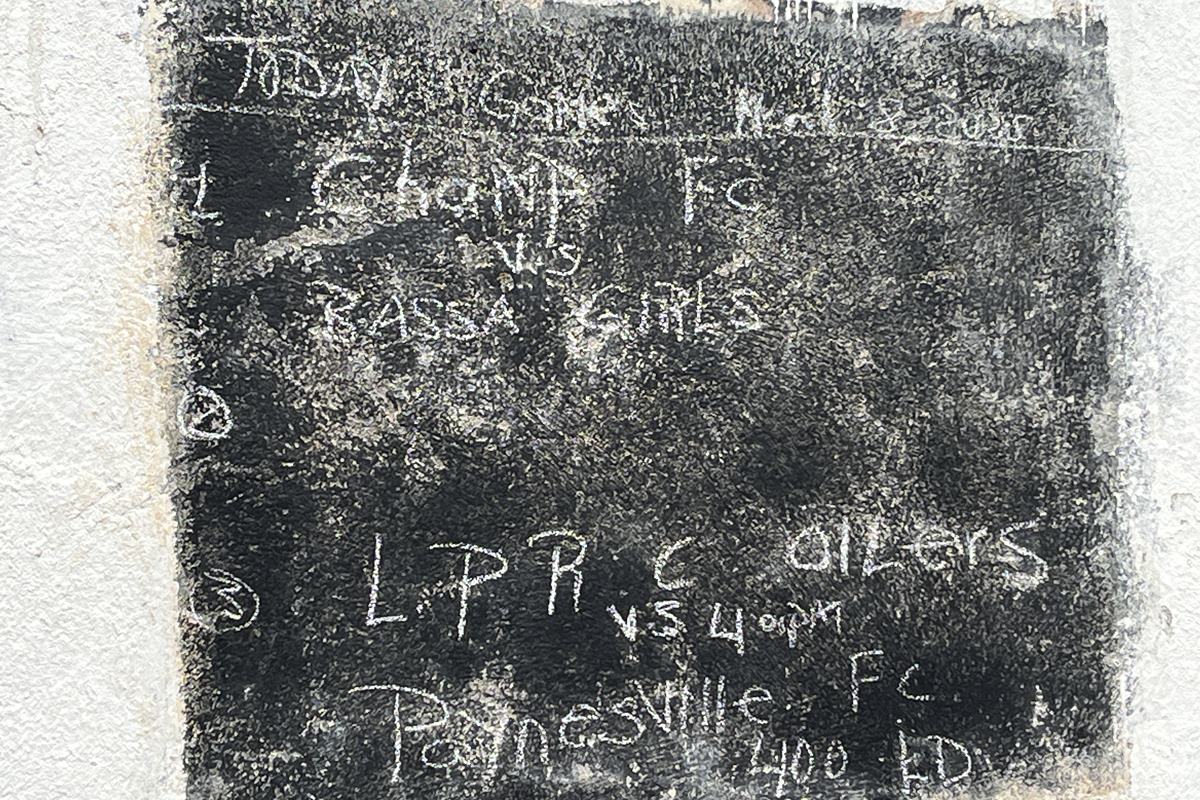 TODAY Games March 8 2025
1 ChaMP FC
V.s
BASSA GIRLS
2
3 L.P R C OILers
VS 4 00pm
Paynesville FC
400 LD